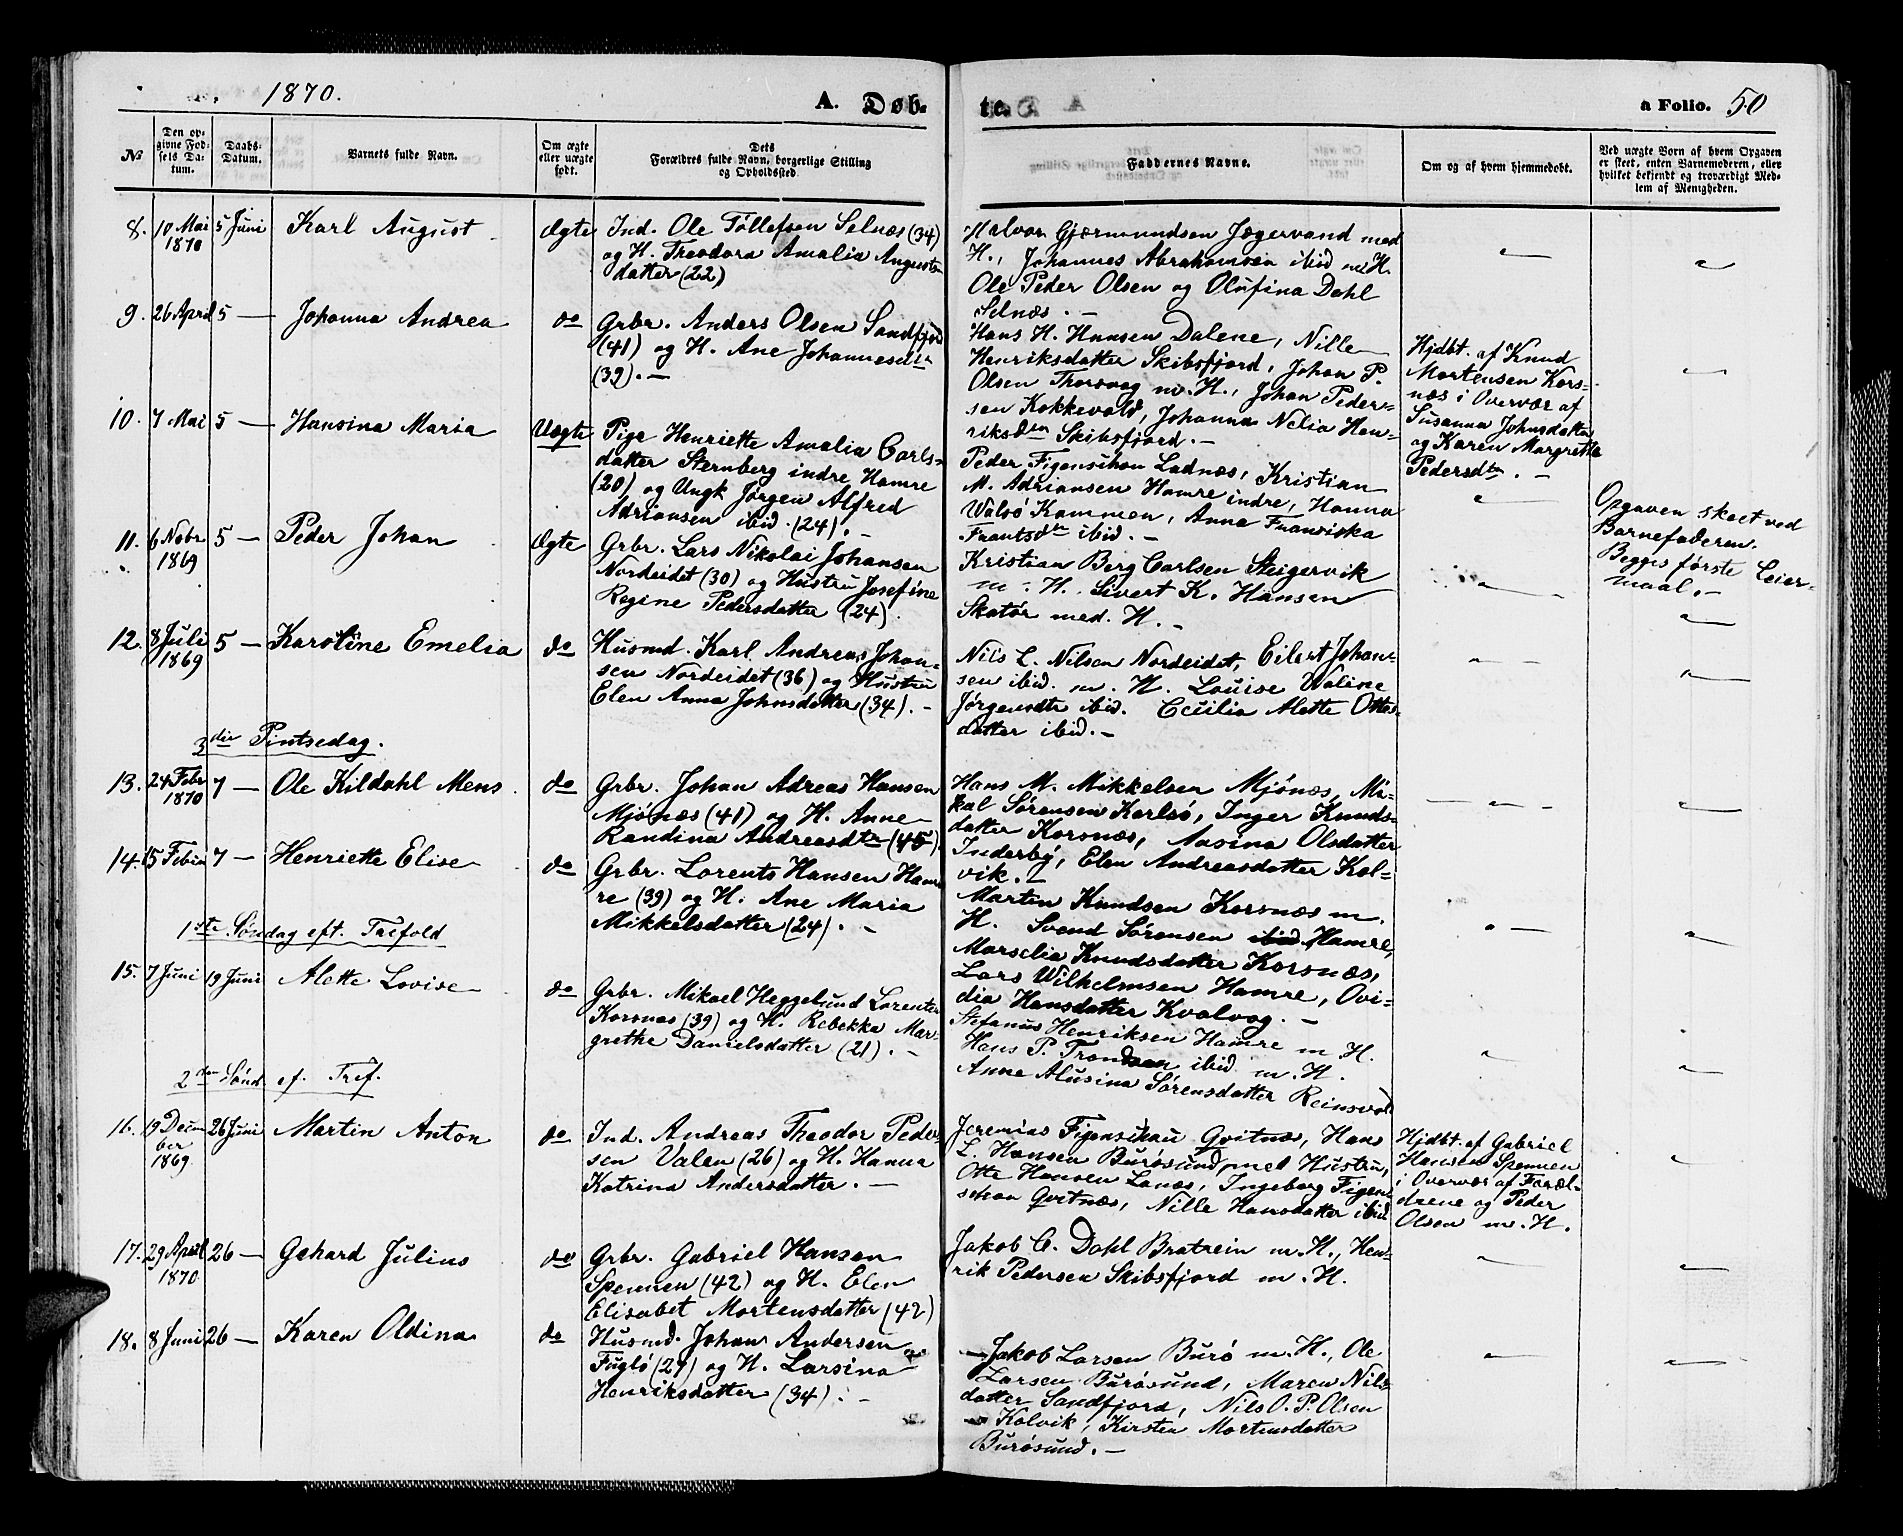 1870.
A. Døb-
te.
a Folio. 50
No
Den op-
givne Fød-
sels Da-
tum.
Daabs-
Datum.
Barnets fulde Navn.
Om ægte
eller uægte
født.
Dets
Forældres fulde Navn, borgerlige Stilling
og Opholdssted.
Faddernes Navne.
Om og af hvem hjemmedøbt.
Ved uægte Børn af hvem Opgaven
er skeet, enten Barnemoderen, eller
hvilket bekjendt og troværdigt Med-
lem af Menigheden.
8. 10 Mai
1870
5 Juni
Karl August
Ægte
Ind. Ole Tollefsen Selnæs (34)
og H. Theodora Amalia August
datter (22)
Halvor Gjermundsen Jægervand med
H., Johannes Abrahamsen ibid m H.
Ole Peder Olsen og Olufina Dahl
Selnæs. —
9. 26 April 5 —
Johanna Andrea
do
Grbr. Anders Olsen Sandfjord
(41) og H. Ane Johannesdtr
(39). —
Hans H. Hansen Dalene, Nille
Henriksdatter Skibsfjord, Johan P.
Olsen Thorsvog m. H., Johan Peder-
sen Kokkevold, Johanna Nelia Hen-
riksdtr Skibsfjord. —
Hjdbt. af Knud
Mortensen Kors-
næs i Overvær af
Susanna Johnsdatter
og Karen Margrethe
Pedersdtr. —
10. 7 Mai 5 —
Hansina Maria
Uægte
Pige Henriette Amalia Carls-
datter Sternberg indre Hamre
(20) og Ungk Jørgen Alfred
Adriansen ibid. (24). —
Peder Figenschau Ladnæs, Kristian
M. Adriansen Hamre indre, Hanna
Walsø Kammen, Anna Fransiska
Frantsdtr ibid. —
Opgaven skeet ved
Barnefaderen.
Begges første Leier-
maal. —
11. 6 Nobr
1869
5 —
Peder Johan
Ægte
Grbr. Lars Nikolai Johansen
Nordeidet (30) og Hustru Josefine
Regine Pedersdatter (24).
Kristian Berg Carlsen Steigervik
m. H. Sivert K. Hansen
Skatør med H. —
12. 8 Juli
1869
5 —
Karoline Emelia
do
Husmd. Karl Andreas Johan-
sen Nordeidet (36) og Hustru
Elen Anna Johnsdatter (34). —
Nils L. Nilsen Nordeidet, Eilert Johan-
sen ibid. m. H. Louise Waline
Jørgensdtr ibid. Cecilia Alette Otte-
datter ibid. —
3die Pintsedag.
13. 24 Febr
1870
7 —
Ole Kildahl Mens
do
Grbr. Johan Adreas Hansen
Mjønæs (41) og H. Anne
Randina Andreasdtr (45).
Hans M. Mikkelsen Mjønæs, Mi-
kal Sørensen Karlsø, Inger Knuds-
datter Korsnæs, Aasina Olsdatter
Inderby, Elen Andreasdatter Kol-
vik. —
14. 15 Febru 7 —
Henriette Elise
do
Grbr. Lorents Hansen Ham-
re (39) og H. Ane Maria
Mikkelsdatter (24). —
Martin Knudsen Korsnæs m.
H. Svend Sørensen ibid Hamre,
Marselia Knudsdatter Korsnæs,
Lars Wilhelmsen Hamre, Ovi-
dia Hansdatter Kvalvog. —
1ste Søndag eft. Trefold
15. 7 Juni 19 Juni
Alette Lovise
do
Grbr. Mikael Heggelund Lorents
Korsnæs (39) og H. Rebekka Mar-
grethe Danielsdatter (21). —
Stefanus Henriksen Hamre m H.
Hans P. Trondsen ibid m. H.
Anne Alusina Sørensdatter Reinsvol
2den Sønd. ef. Tref.
16. 19 Decm
ber
1869
26 Juni
Martin Anton
do
Ind. Andreas Theodor Peder-
sen Valen (26) og H. Hanna
Katrina Andersdatter. —
Jeremias Figenschau Qvitnæs, Hans
L. Hansen Burøsund med Hustru,
Otte Hansen Lanæs, Ingeborg Figen-
schau Qvitnæs, Nille Hansdatter ibid
Hjdbt. af Gabriel
Hansen Spennen
i Overvær af Foræl-
drene og Peder
Olsen m. H.
17. 29 April
1870
26 —
Gehard Julius
do
Grbr. Gabriel Hansen
Spennen (42) og H. Elen
Elisabet Mortensdatter (42)
Jakob C. Dahl Bratrein m. H., Hen-
rik Pedersen Skibsfjord m. H.
18. 8 Juni 26 —
Karen Oldina
do
Husmd. Johan Andersen
Fuglø (27) og H. Larsina
Henriksdatter (34). —
Jakob Larsen Burø m. H., Ole
Larsen Burøsund, Maren Nils-
datter Sandfjord, Nils O. P. Olsen
Kolvik, Kirsten Mortensdatter
Burøsund. —